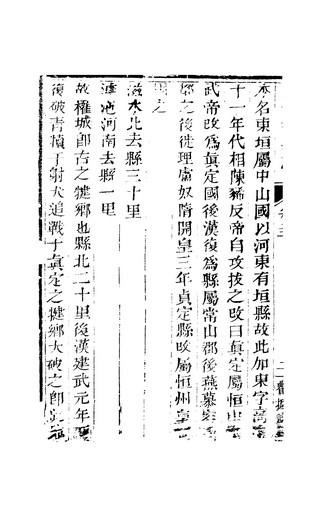 本名東垣屬中山國以河東有垣縣故此加東字
十一年代相陳豨反帝自攻拔之改曰真定屬恒山
武帝改為眞定國後漢復為縣屬常山郡後燕慕容
之後徙理盧奴隋開皇三年貞定縣改屬恒州
之
滋水北去縣三十里
滹沱河南去縣一里
故權城卽古之犍鄉也縣北二十里後漢建武元年
復破青犢于射犬追戰于眞定之犍鄉大破之卽